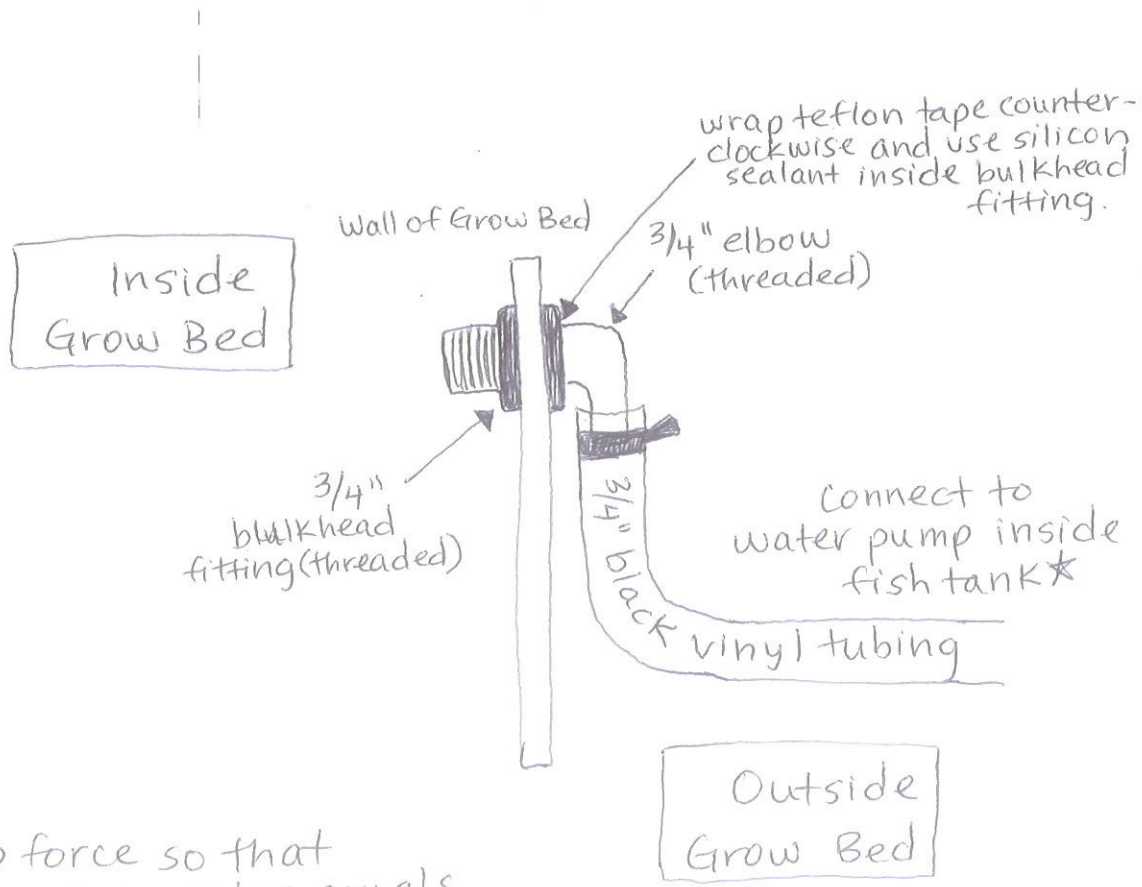 wrap teflon tape counter-
clockwise and use silicon
sealant inside bulkhead
fitting.
Wall of Grow Bed
3/4" elbow
(threaded)
Inside
Grow Bed
3/4"
bulkhead
fitting (threaded)
3/4" black vinyl tubing
Connect to
water pump inside
fish tank★
Outside
Grow Bed
force so that
equals